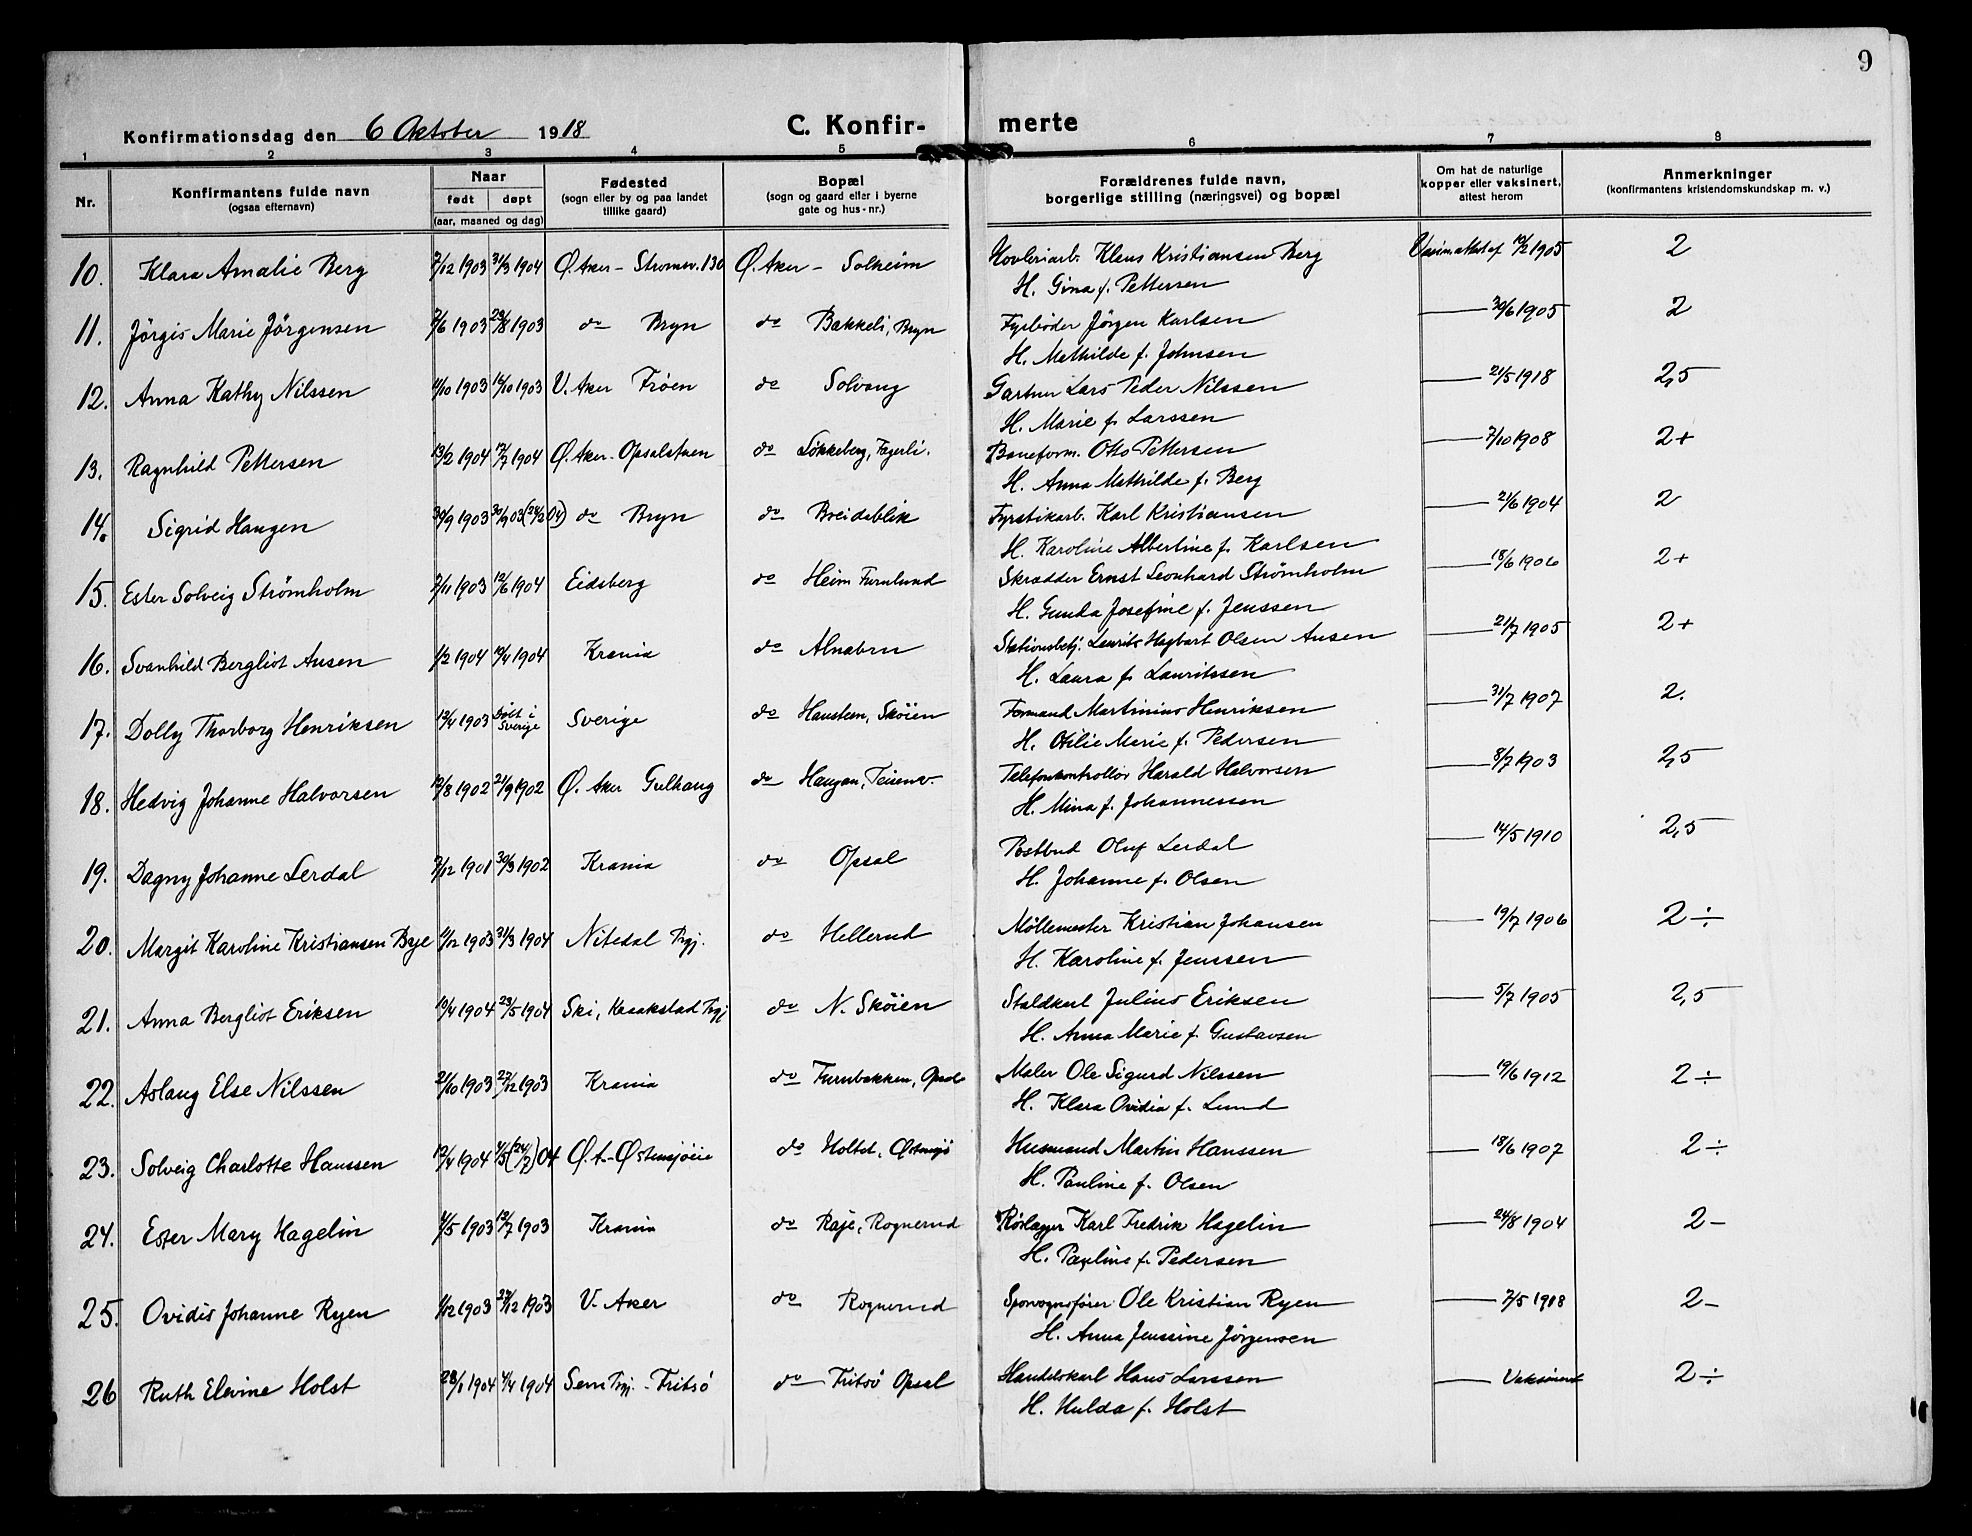 9
Konfirmationsdag den 6 Oktober 1918 C. Konfir- merte
1 2 3 4 5 6 7 8
Nr. Konfirmantens fulde navn (ogsaa efternavn) Naar født døpt (aar, maaned og dag) Fødested (sogn eller by og paa landet tillike gaard) Bopæl (sogn og gaard eller i byerne gate og hus-nr.) Forældrenes fulde navn, borgerlige stilling (næringsvei) og bopæl Om hat de naturlige kopper eller vaksinert, attest herom Anmerkninger (konfirmantens kristendomskundskap m. v.)
10. Klara Amalie Berg 7/12 1903 31/3 1904 Ø. Aker - Strømsv. 130 Ø. Aker - Solheim Høvleriarb. Klaus Kristiansen Berg 1905 2
H. Gina f. Pettersen
11. Jörgis Marie Jörgensen 7/6 1903 23/8 1903 do Bryn do Bakkeli, Bryn Fyrbøder Jörgen Karlsen 30/6 1905 2
H. Mathilde f. Johnsen
12. Anna Kathy Nilssen 1903 1903 V. Aker Frøen do Solvang Gartner Lars Peder Nilssen 21/5 1918 2,5
H. Marie f. Larssen
13. Ragnhild Pettersen 13/2 1904 17/7 1904 Ø. Aker - Opsalstuen do Løkkeberg, Fagerli. Baneform. Otto Pettersen 7/10 1908 2+
H. Anna Mathilde f. Berg
14. Sigrid Haugen 1903 do Bryn do Breidablik Fyrstikarb. Karl Kristiansen 21/6 1904 2
H. Karoline Albertine f. Karlsen
15. Ester Solveig Strømholm 7/11 1903 12/6 1904 Eidsberg do Heim Furulund Skrædder Ernst Leonhard Strømholm 18/6 1906 2+
H. Gunda Josefine f. Jenssen
16. Svanhild Bergliot Ausen 1/2 1904 1904 Krania do Alnabru Stationsbetj. Laurits Hagbart Olsen Ausen 21/7 1905 2+
H. Laura f. Lauritssen
17. Dolly Thorborg Henriksen 12/4 1903 Døbt i Sverige Sverige do Haustuen, Skøien Formand Martinius Henriksen 31/7 1907 2.
H. Otilie Marie f. Pedersen
18. Hedvig Johanne Halvorsen 1902 21/9 1902 Ø. Aker Gulhaug do Haugen, Teisenv. Telefonkontrollør Harald Halvorsen 8/7 1903 2,5
H. Mina f. Johannessen
19. Dagny Johanne Lerdal 7/12 1901 30/3 1902 Krania do Opsal Postbud Oluf Lerdal 14/5 1910 2,5
H. Johanne f. Olsen
20. Margit Karoline Kristiansen Bye 1903 31/3 1904 Nitedal Prgj. do Hellerud Møllemester Kristian Johansen 19/7 1906 2÷
H. Karoline f. Jenssen
21. Anna Bergliot Eriksen 10/4 1904 23/5 1904 Ski, Kraakstad Prgj do N. Skøien Staldkarl Julius Eriksen 5/7 1905 2,5
H. Anna Marie f. Gustavsen
22. Aslaug Else Nilssen 21/10 1903 27/12 1903 Krania do Furubakken, Opsal Maler Ole Sigurd Nilssen 19/6 1912 2÷
H. Klara Ovidia f. Lund
23. Solveig Charlotte Hanssen 12/4 1904 4/5 (24/7) 04 Ø. A - Østensjøeie do Holtet, Østensjø Husmand Martin Hanssen 18/6 1907 2÷
H. Pauline f. Olsen
24. Ester Mary Hagelin 4/5 1903 12/7 1903 Krania do Raje, Rognerud Rørlægger Karl Fredrik Hagelin 24/8 1904 2-
H. Pauline f. Pedersen
25. Ovidis Johanne Ryen 1/12 1903 27/12 1903 V. Aker do Rognerud Sporvognsfører Ole Kristian Ryen 7/5 1918 2-
H. Anna Jenssine Jörgensen
26 Ruth Elevine Holst 28/1 1904 4/4 1904 Sem Prgj. - Fritsø do Fritsø Opsal Handelskarl Hans Larssen Vaksinert 2÷
H. Hulda f. Holst